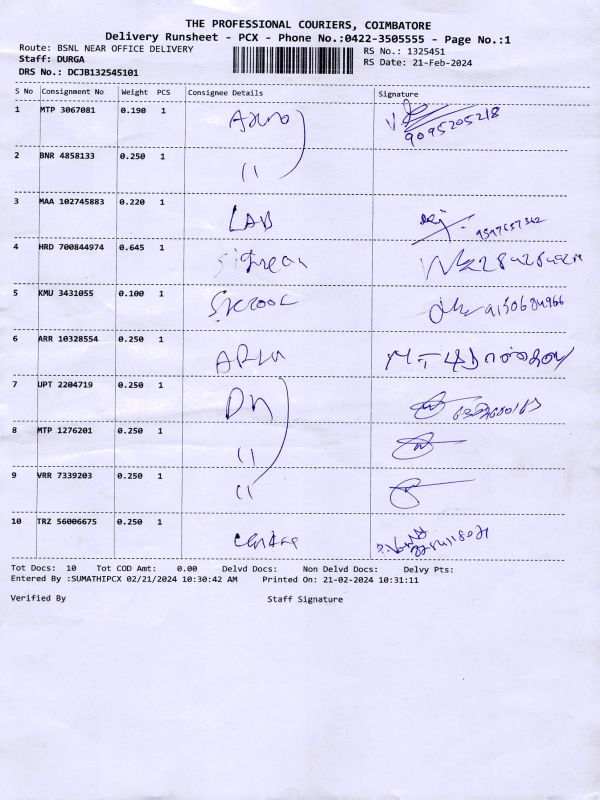 THE PROFESSIONAL COURIERS, COIMBATORE
Delivery Runsheet - PCX - Phone No.:0422-3505555 - Page No.:1
Route: BSNL NEAR OFFICE DELIVERY RS No.: 1325451
Staff: DURGA RS Date: 21-Feb-2024
DRS No.: DCJB132545101
S No Consignment No Weight PCS Consignee Details Signature
1 MTP 3067081 0.190 1 9095205218
2 BNR 4858133 0.250 1 11
3 MAA 102745883 0.220 1 LAB
4 HRD 700844974 0.645 1
5 KMU 3431055 0.100 1
6 ARR 10328554 0.250 1
7 UPT 2204719 0.250 1
8 MTP 1276201 0.250 1 11
9 VRR 7339203 0.250 1 11
10 TRZ 56006675 0.250 1
Tot Docs: 10 Tot COD Amt: 0.00 Delvd Docs: Non Delvd Docs: Delvy Pts:
Entered By :SUMATHIPCX 02/21/2024 10:30:42 AM Printed On: 21-02-2024 10:31:11
Verified By Staff Signature